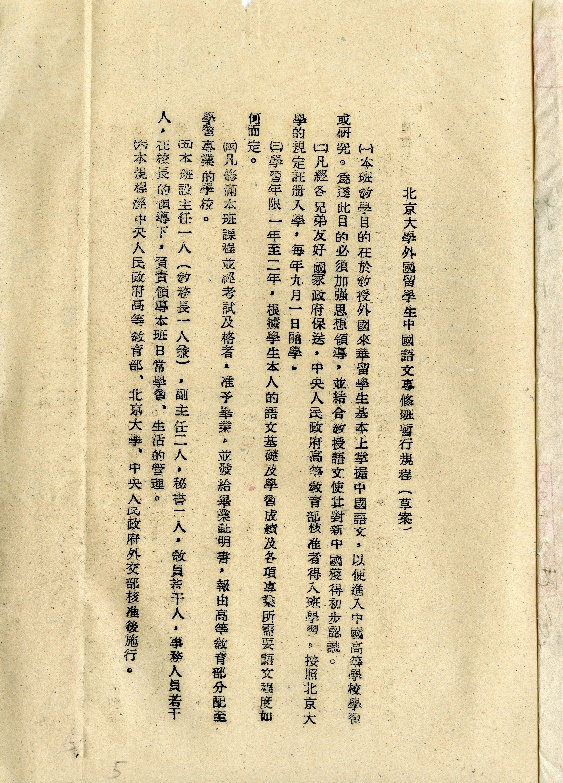 北京大學外國留學生中國語文專修班暫行規程(草案)
㈠本班教學目的在於教授外國來華留學生基本上掌握中國語文,以便進入中國高等學校學習
或研究。為達此目的必須加强思想領導,並結合教授語文使其對新中國獲得初步認識。
㈡凡經各兄弟友好國家政府保送,中央人民政府高等教育部核准者得入班學習。按照北京大
學的規定註册入學,每年九月一日開學。
㈢學習年限一年至二年,根據學生本人的語文基礎及學習成績及各項專業所需要語文程度如
何而定。
㈣凡修滿本班課程並經考試及格者,准予畢業,並發給畢業証明書,報由高等教育部分配至
學習專業的學校。
㈤本班設主任一人(教務長一人兼),副主任二人,秘書一人,教員若干人,事務人員若干
人,在校長的領導下,負責領導本班日常學習、生活的管理。
㈥本規程經中央人民政府高等教育部、北京大學、中央人民政府外交部核准後施行。
5